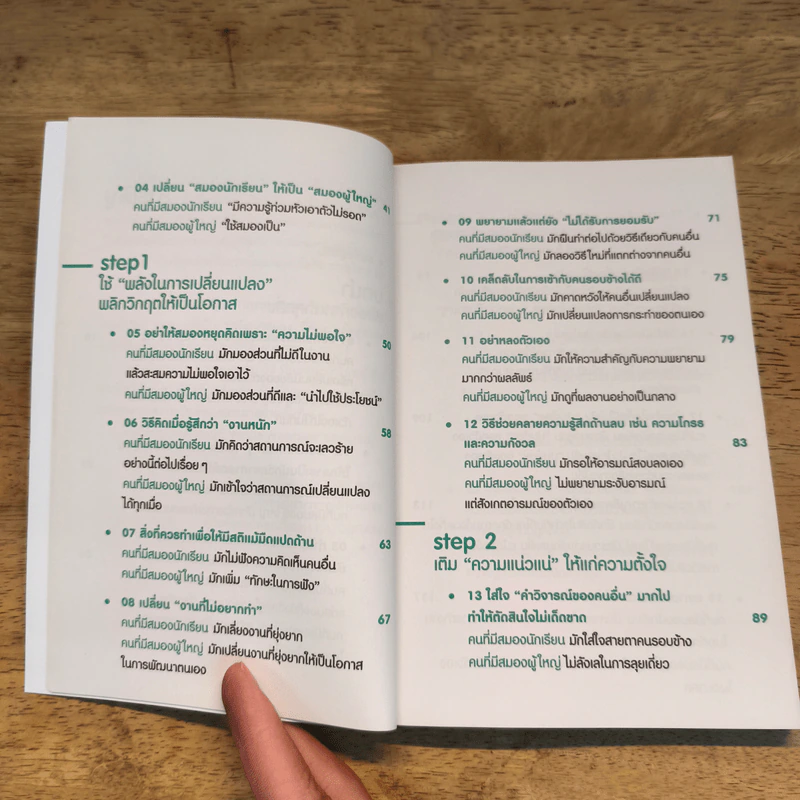 • 04 เปลี่ยน “สมองนักเรียน” ให้เป็น “สมองผู้ใหญ่” 41
คนที่มีสมองนักเรียน “มีความรู้ท่วมหัวเอาตัวไม่รอด”
คนที่มีสมองผู้ใหญ่ “ใช้สมองเป็น”
step1
ใช้ “พลังในการเปลี่ยนแปลง”
พลิกวิกฤตให้เป็นโอกาส
• 05 อย่าให้สมองหยุดคิดเพราะ “ความไม่พอใจ” 50
คนที่มีสมองนักเรียน มักมองส่วนที่ไม่ดีในงาน
แล้วสะสมความไม่พอใจเอาไว้
คนที่มีสมองผู้ใหญ่ มักมองส่วนที่ดีและ “นำไปใช้ประโยชน์”
• 06 วิธีคิดเมื่อรู้สึกว่า “งานหนัก” 58
คนที่มีสมองนักเรียน มักคิดว่าสถานการณ์จะเลวร้าย
อย่างนี้ต่อไปเรื่อยๆ
คนที่มีสมองผู้ใหญ่ มักเข้าใจว่าสถานการณ์เปลี่ยนแปลง
ได้ทุกเมื่อ
• 07 สิ่งที่ควรทำเพื่อให้มีสติแม้มืดแปดด้าน 63
คนที่มีสมองนักเรียน มักไม่ฟังความคิดเห็นคนอื่น
คนที่มีสมองผู้ใหญ่ มักเพิ่ม “ทักษะในการฟัง”
• 08 เปลี่ยน “งานที่ไม่อยากทำ” 67
คนที่มีสมองนักเรียน มักเลี่ยงงานที่ยุ่งยาก
คนที่มีสมองผู้ใหญ่ มักเปลี่ยนงานที่ยุ่งยากให้เป็นโอกาส
ในการพัฒนาตนเอง
• 09 พยายามแล้วแต่ยัง “ไม่ได้รับการยอมรับ” 71
คนที่มีสมองนักเรียน มักฝืนทำต่อไปด้วยวิธีเดียวกับคนอื่น
คนที่มีสมองผู้ใหญ่ มักลองวิธีใหม่ที่แตกต่างจากคนอื่น
• 10 เคล็ดลับในการเข้ากับคนรอบข้างได้ดี 75
คนที่มีสมองนักเรียน มักคาดหวังให้คนอื่นเปลี่ยนแปลง
คนที่มีสมองผู้ใหญ่ มักเปลี่ยนแปลงการกระทำของตนเอง
• 11 อย่าหลงตัวเอง 79
คนที่มีสมองนักเรียน มักให้ความสำคัญกับความพยายาม
มากกว่าผลลัพธ์
คนที่มีสมองผู้ใหญ่ มักดูที่ผลงานอย่างเป็นกลาง
• 12 วิธีช่วยคลายความรู้สึกด้านลบ เช่น ความโกรธ
และความกังวล 83
คนที่มีสมองนักเรียน มักรอให้อารมณ์สงบลงเอง
คนที่มีสมองผู้ใหญ่ ไม่พยายามระงับอารมณ์
แต่สังเกตอารมณ์ของตัวเอง
step 2
เติม “ความแน่วแน่” ให้แก่ความตั้งใจ
• 13 ใส่ใจ “คำวิจารณ์ของคนอื่น” มากไป
ทำให้ตัดสินใจไม่เด็ดขาด 89
คนที่มีสมองนักเรียน มักใส่ใจสายตาคนรอบข้าง
คนที่มีสมองผู้ใหญ่ ไม่ลังเลในการลุยเดี่ยว